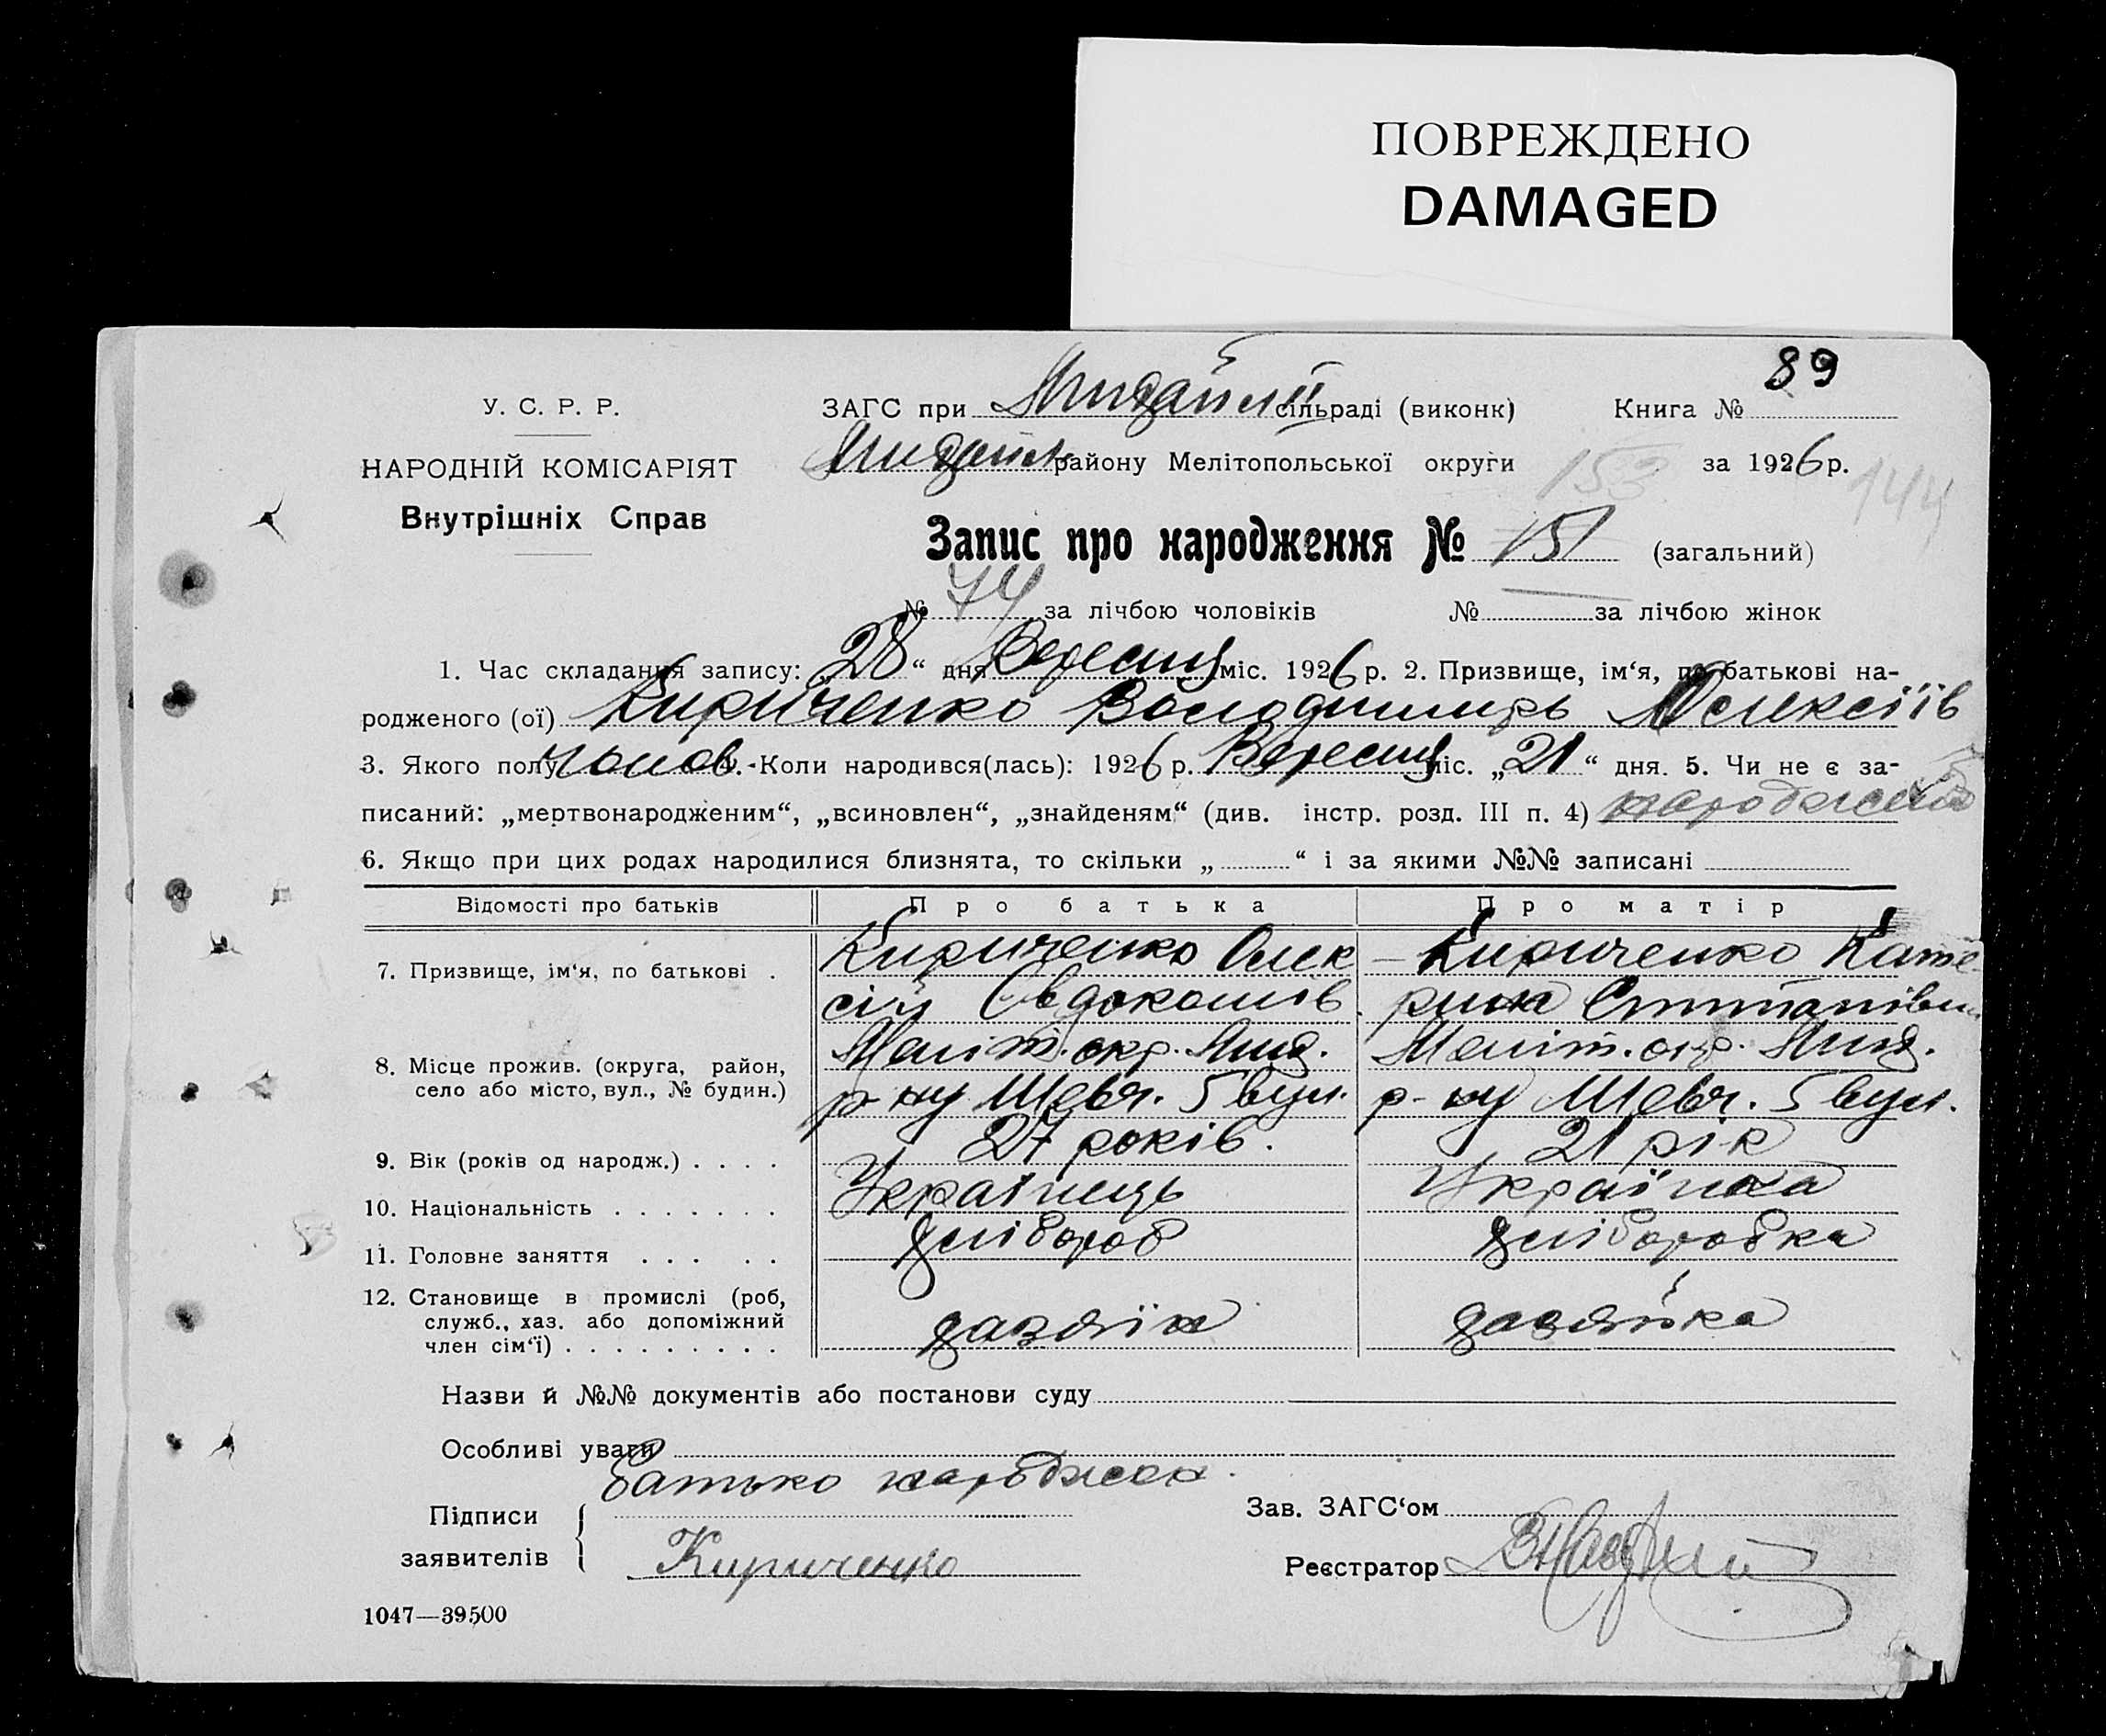 ПОВРЕЖДЕНО
DAMAGED
89
У. С. Р. Р.
ЗАГС при Михайлів сільраді (виконк) Книга №
НАРОДНІЙ КОМІСАРІЯТ
Михайл району Мелітопольської округи 153 за 1926 р. 144
Внутрішніх Справ
Запис про народження № 151 (загальний)
№ 74 за лічбою чоловіків № за лічбою жінок
1. Час складання запису: „28“ дня Вересня міс. 1926 р. 2. Призвище, ім‘я, по батькові на-
родженого (ої) Кириченко Володимирь Олексіїв
3. Якого полу чолов. 4. Коли народився(лась): 1926 р. Вересня міс. „21“ дня. 5. Чи не є за-
писаний: „мертвонародженим“, „всиновлен“, „знайденям“ (див. інстр. розд. III п. 4)
6. Якщо при цих родах народилися близнята, то скільки „ “ і за якими №№ записані
Відомості про батьків Про батька Про матір
7. Призвище, ім‘я, по батькові . Кириченко Олек Кириченко Кате-
сій Овдокимів рина Степанівна
8. Місце прожив. (округа, район, Меліт. окр. Мих. Меліт. окр. Мих.
село або місто, вул., № будин.) р-ну Шевч. 5 вул. р-ну Шевч. 5 вул.
9. Вік (років од народж.) . . . . 27 років. 21 рік
10. Національність . . . . . . . Українець Українка
11. Головне заняття . . . . . хлібороб хліборобка
12. Становище в промислі (роб,
служб., хаз. або допоміжний хазяїн хазяйка
член сім‘ї) . . . . . . . . .
Назви й №№ документів або постанови суду
Особливі уваги
Батько
Підписи Зав. ЗАГС‘ом
заявителів Кириченко Реєстратор
1047—39500